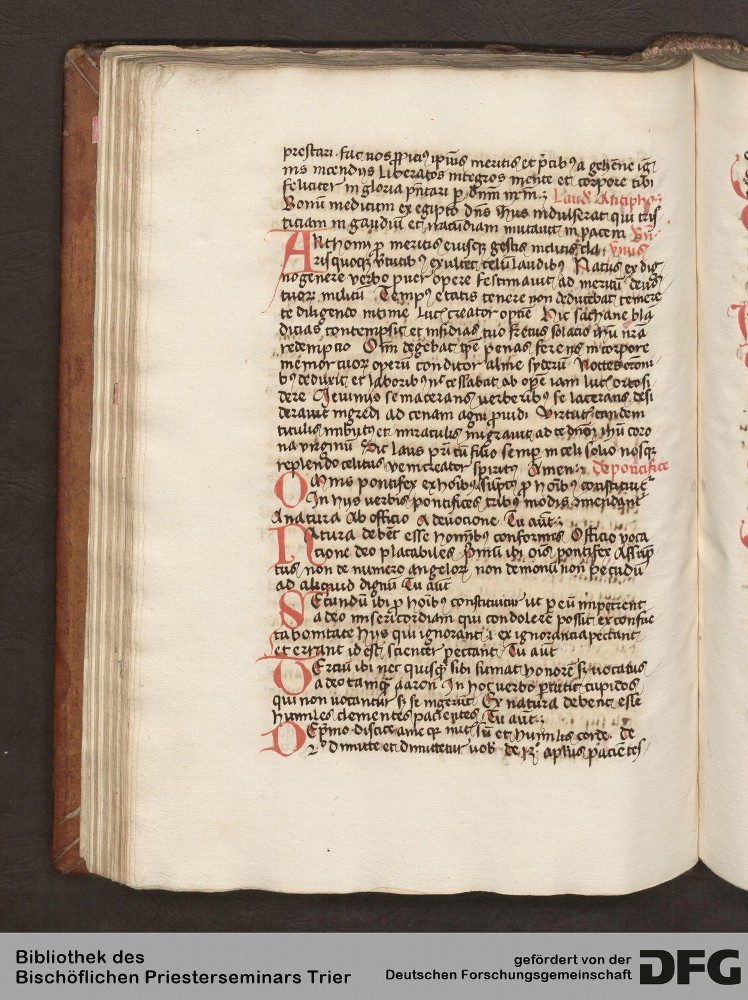 prestari fac nos ꝓpicius ipius meritis et p̄cibus a gehēne ig
nis incendijs liberatos integros mente et corpore tibi
feliciter in gloria pn̄tari ꝑ dn̄m nr̄m Laud Antipho
Bonū medicum ex egipto dn̄s ihus indulserat qui tris
ticiam in gaudiū et iracūdiam mutauit in pacem
Anthonij ꝓ meritis eiusqꝫ gestis inclitis cla ymnus
risquoqꝫ v̄tutibus exultet celū laudibus Natus ex dig
no genere verbo puer opere festinauit ad meritū deus
tuorꝫ militū Tempus etatis tenere non deducebat temere
te diligendo intime lucis creator optie Hic sathane bla
dicias contempsit et insidias tuo fretus solacio ihū nr̄a
redempcio Olim degebat ip̄e penas ferens in corpore
memor tuorꝫ operū conditor alme syderū Noctes orationi
bus deduxit et laboribus nec cessabat ab oꝑe iam lucis orto si
dere Ieiunijs se macerans verberibus se lacerans desi
derauit ingredi ad cenam agni prouidi Virtutis tandem
titulis imbutus et miraculis migrauit ad te dn̄m ihū coro
na virginū Sit laus pr̄i cū filio semꝑ in celi solio nosqꝫ
replendo celitus veni creator spiritus Amen de pontifice
Omnis pontifex ex hoībus assūptus ꝓ hoībus constituitur
In hijs verbis pontifices tribus modis
A natura Ab officio A deuocione Tu aūt
Natura debēt esse hominibus conformes Officio voca
cione deo placabiles Primū ibi oīs pontifex assūp
tus non de numero angelorꝫ non demonū non pecudū
ad aliquid dignū Tu aūt
Secundū ibi ꝓ hoībus constituitur ut ꝑ eū impetrent
a deo misericordiam qui condolere possit ex consue
ta bonitate hijs qui ignorant i ex ignorancia peccant
et errant id est scienter peccant Tu aūt
Terciū ibi nec quisqꝫ sibi sumat honorē sꝫ vocatus
a deo tamqꝫ aaron In hoc verbo cupidos
qui non vocantur sꝫ se ingerūt Ex natura debent esse
humiles clementes pacientes Tu aūt
De pͥmo discite a me qꝫ mitis sū et humilis corde de
2º dimitte et dimittetur vobis de 3º aptus pacientes
Bibliothek des
Bischöflichen Priesterseminars Trier
gefördert von der
Deutschen Forschungsgemeinschaft
DFG